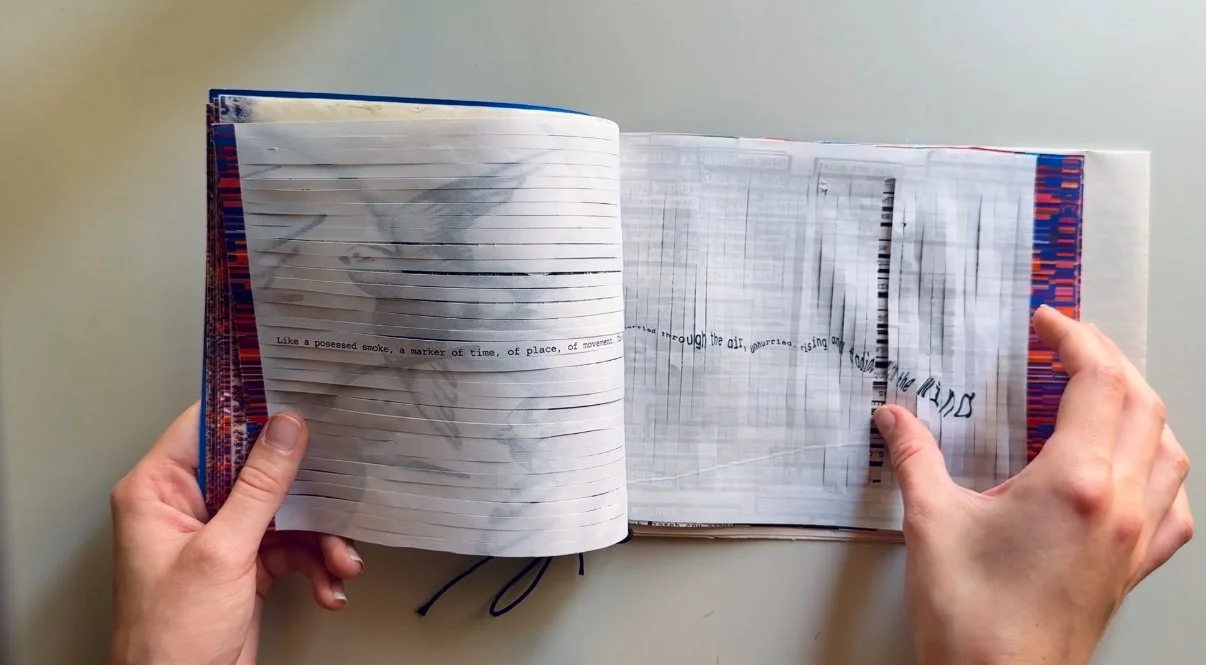 Like a posessed smoke, a marker of time, of place, of movement.
through the air, unhurried, rising and fading in the WIND